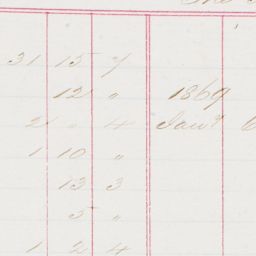 31 15 7
12 "
1869
2 " 4
Jany
1 10 "
13 3
5 "
1 2 4